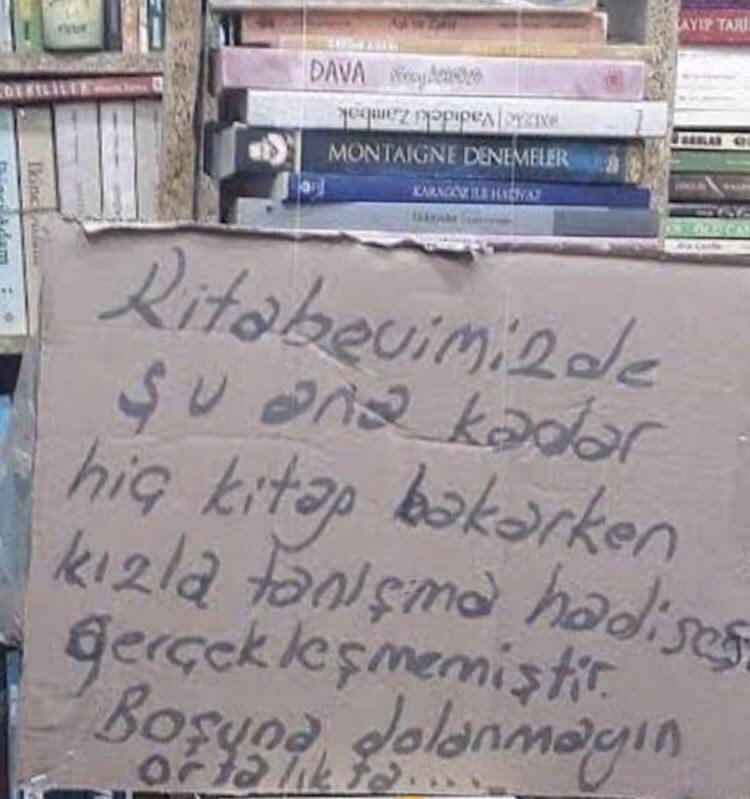 DAVA
Vadideki Zambak
MONTAIGNE DENEMELER
KARAGÖZ İLE HACİVAT
Kitabevimizde
şu ana kadar
hiç kitap bakarken
kızla tanışma hadisesi
gerçekleşmemiştir.
Boşuna dolanmayın
ortalıkta....